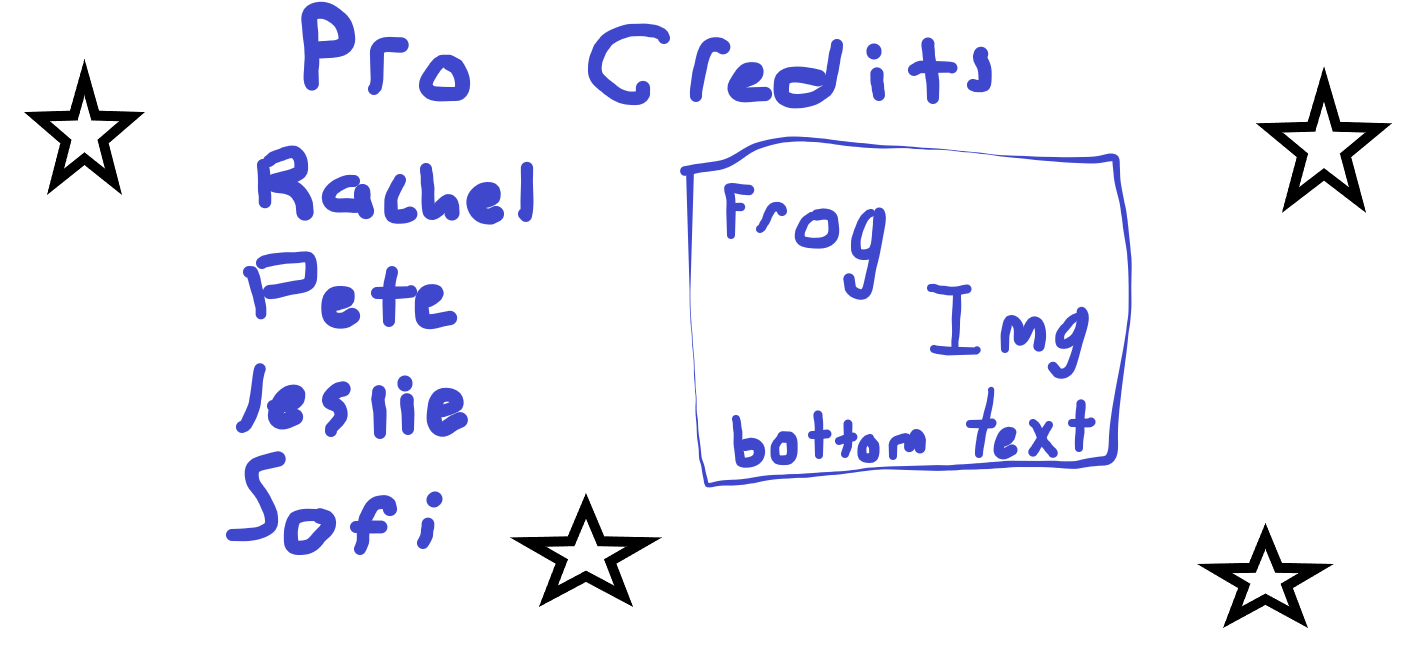 Pro Credits
Rachel
Pete
Leslie
Sofi
Frog
Img
bottom text